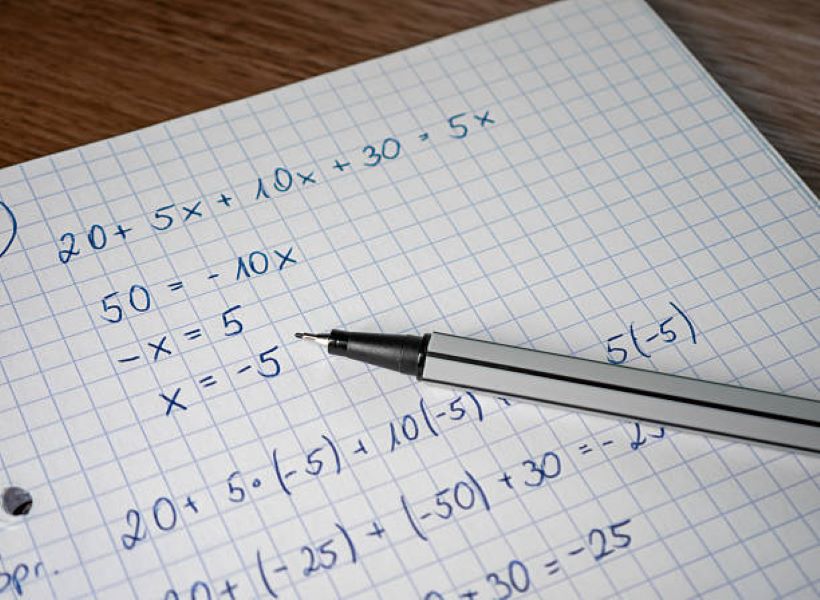 )
20 + 5x + 10x + 30 = 5x
50 = - 10x
-x = 5
x = -5
20 + 5 · (-5) + 10(-5) 5(-5)
+ (-25) + (-50) + 30 = -
+ 30 = -25